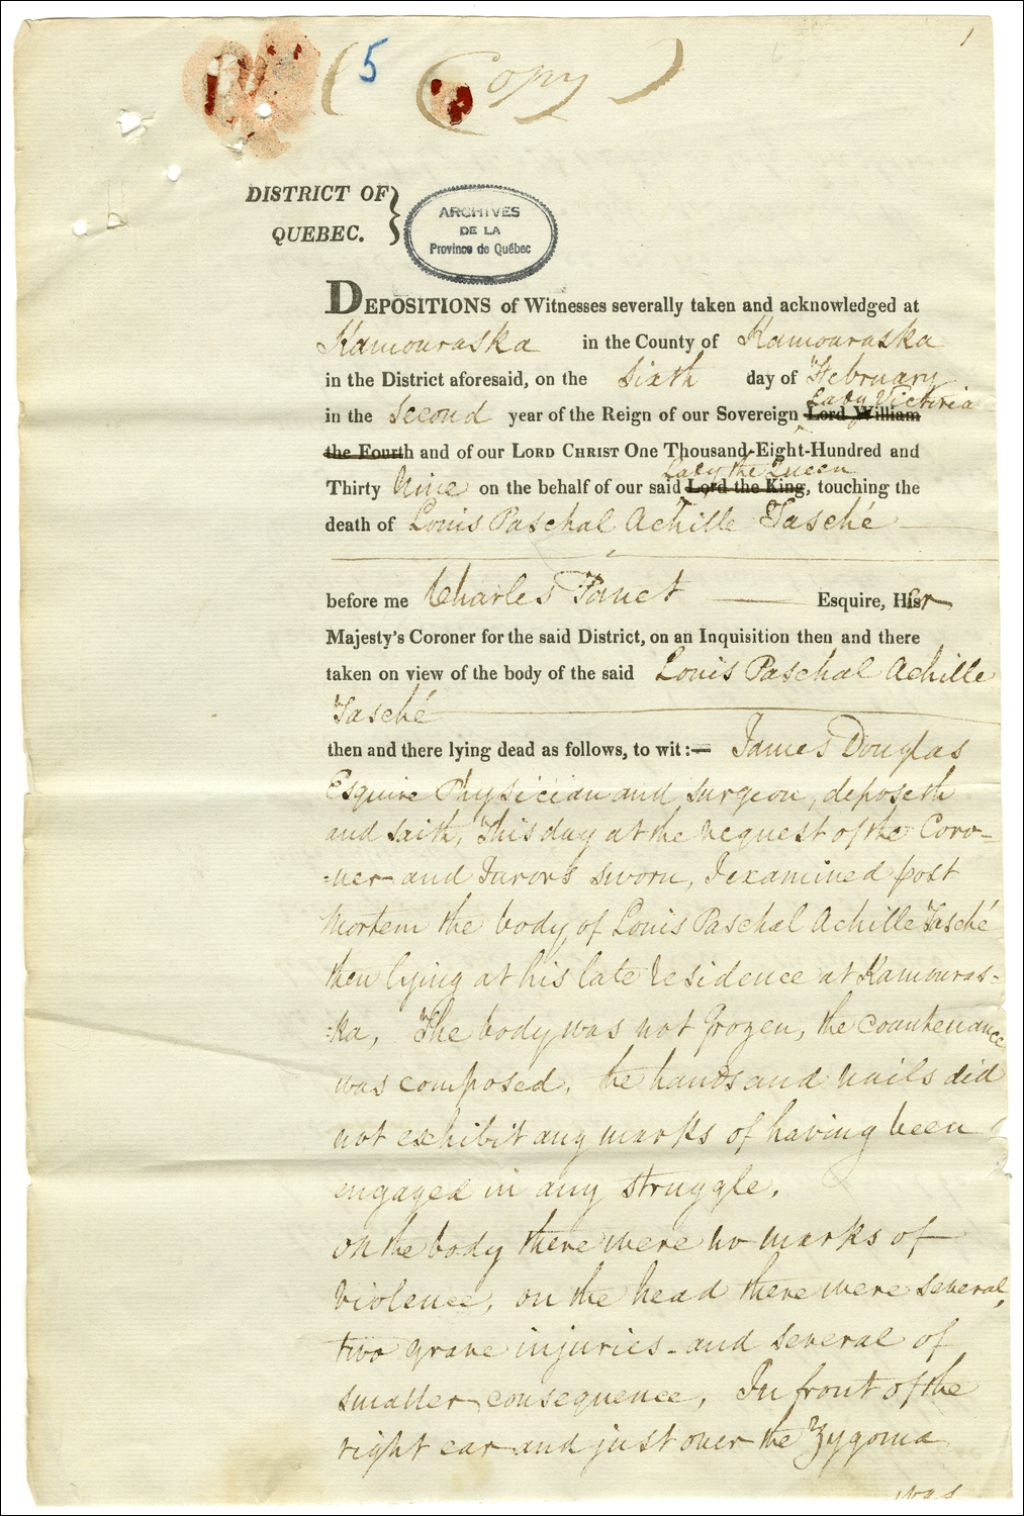 1
( 5 (Copy)
DISTRICT OF
QUEBEC. }
ARCHIVES
DE LA
Province de Québec
DEPOSITIONS of Witnesses severally taken and acknowledged at
Kamouraska in the County of Kamouraska
in the District aforesaid, on the Sixth day of February
Lady Victoria
in the Second year of the Reign of our Sovereign Lord William
the Fourth and of our LORD CHRIST One Thousand Eight-Hundred and
Lady the Queen
Thirty Nine on the behalf of our said Lord the King, touching the
death of Louis Paschal Achille Tasché
before me Charles Panet Esquire, Her
Majesty's Coroner for the said District, on an Inquisition then and there
taken on view of the body of the said Louis Paschal Achille
Tasché
then and there lying dead as follows, to wit:— James Douglas
Esquire Physician and Surgeon, deposeth
and saith, This day at the request of the Coro=
=ner and Jurors sworn, I examined post
Mortem the body of Louis Paschal Achille Tasché
then lying at his late residence at Kamouras-
=ka, The body was not frozen, the countenance
was composed, he hands and nails did
not exhibit any marks of having been
engaged in any struggle.
on the body there were no marks of
violence, on the head there were several,
two grave injuries - and several of
smaller consequence, In front of the
right ear and just over the Zygoma
was